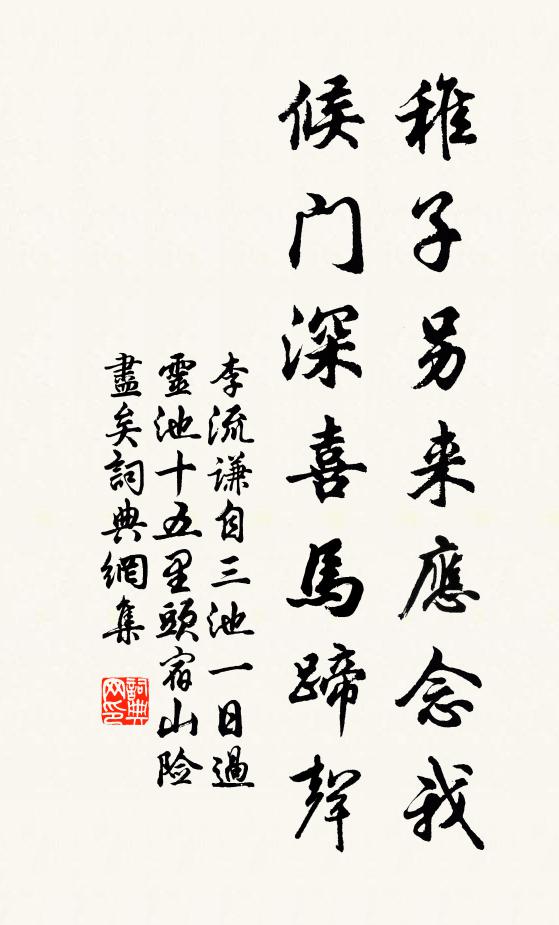 稚子另来應念我
候门深喜馬蹄聲
李流谦自三池一日過
靈池十五里頭宿山险
盡矣詞典網集
詞典网印